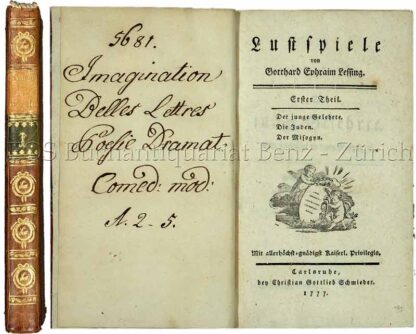 5681.
Imagination
Belles Lettres
Poesie Dramat.
Comed: mod:
N. 2-5.
Lustspiele
von
Gotthard Ephraim Lessing.
Erster Theil.
Der junge Gelehrte.
Die Juden.
Der Misogyn.
Mit allerhöchst-gnädigst Kaiserl. Privilegio.
Carlsruhe,
bey Christian Gottlieb Schmieder.
1777.
Buchantiquariat Benz - Zürich